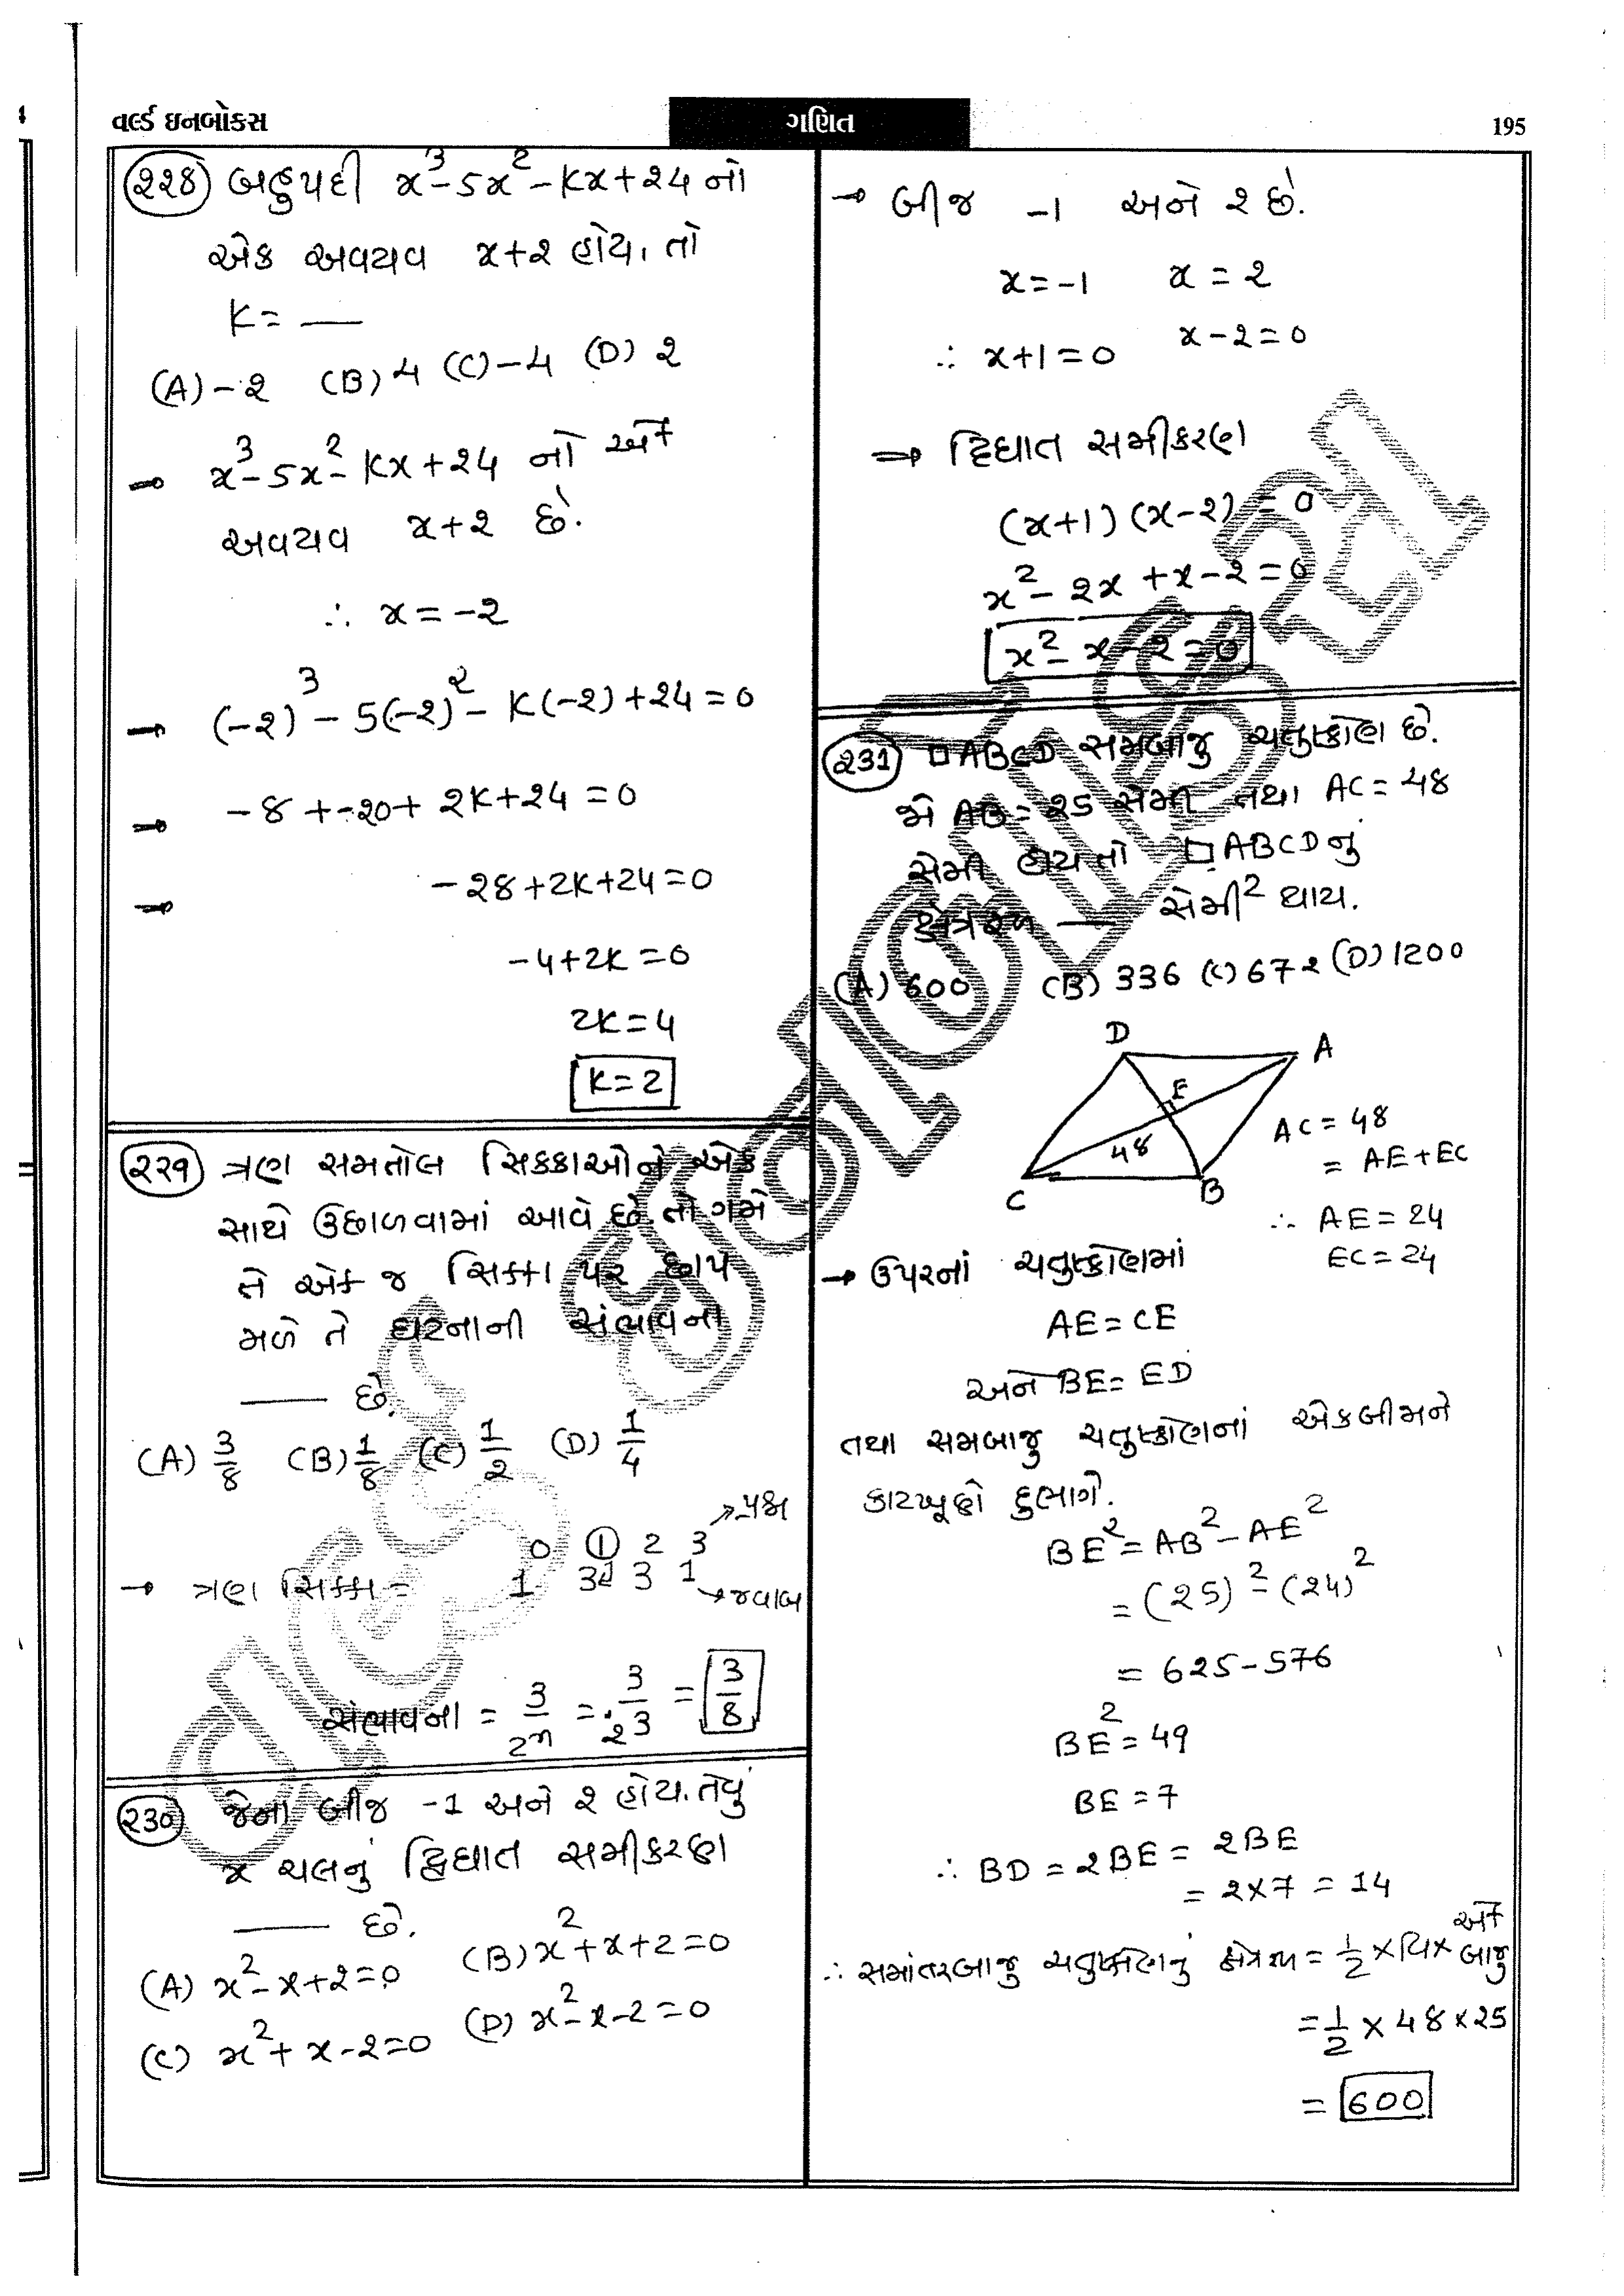 વર્લ્ડ ઇનબોક્સ
ગણિત
195
૨૨૪ બહુપદી x³-5x²-Kx+24 નો
એક અવયવ x+2 હોય, તો
K= —
(A)-2 (B) 4 (C)-4 (D) 2
→ x³-5x²-Kx+24 નો એક
અવયવ x+2 છે.
∴ x=-2
→ (-2)³-5(-2)²-K(-2)+24=0
→ -8+-20+2K+24=0
→ -28+2K+24=0
-4+2K=0
2K=4
K=2
૨૨૧ ત્રણ સમતોલ સિક્કાઓને એક
સાથે ઉછાળવામાં આવે છે. તો ગમે
તે એક જ સિક્કા પર છાપ
મળે તે ઘટનાની સંભાવના
—— છે.
(A) 3/8 (B) 1/8 (C) 1/2 (D) 1/4
0 ① 2 3 →પ્રશ્ન
→ ત્રણ સિક્કા = 1 3 3 1 →જવાબ
સંભાવના = 3/2ⁿ = 3/2³ = 3/8
૨૩૦ જેના બીજ -1 અને 2 હોય. તેવું
x ચલનું દ્વિઘાત સમીકરણ
—— છે.
(A) x²-x+2=0 (B) x²+x+2=0
(C) x²+x-2=0 (D) x²-x-2=0
→ બીજ -1 અને 2 છે.
x=-1 x=2
∴ x+1=0 x-2=0
⇒ દ્વિઘાત સમીકરણ
(x+1)(x-2)=0
x²-2x+x-2=0
x²-x-2=0
૨૩૧ □ABCD સમબાજુ ચતુષ્કોણ છે.
જો AB=25 સેમી તથા AC=48
સેમી હોય તો □ABCDનું
ક્ષેત્રફળ —— સેમી² થાય.
(A) 600 (B) 336 (C) 672 (D) 1200
D A
E
48
C B
AC=48
= AE+EC
∴ AE=24
EC=24
→ ઉપરનાં ચતુષ્કોણમાં
AE=CE
અને BE=ED
તથા સમબાજુ ચતુષ્કોણનાં એકબીજાને
કાટખૂણે દુભાગે.
BE²=AB²-AE²
=(25)²-(24)²
=625-576
BE²=49
BE=7
∴ BD=2BE=2BE
=2×7=14
∴ સમાંતરબાજુ ચતુષ્કોણનું ક્ષેત્રફળ = 1/2 × × એક બાજુ
= 1/2 × 48 × 25
= 600